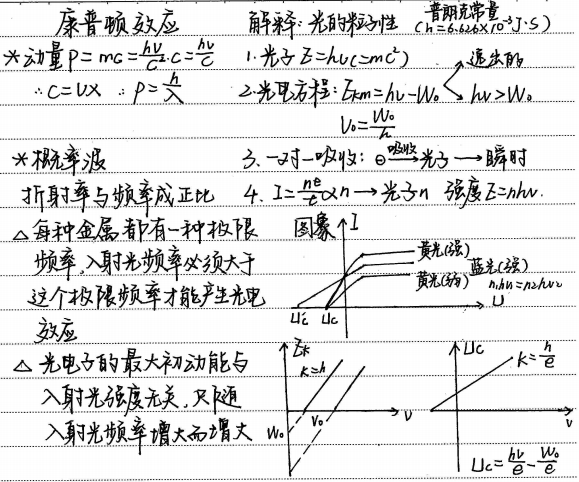 康普顿效应
解释:光的粒子性
普朗克常量
(h=6.626×10⁻³J·S)
*动量P=mc=hν/c²·c=hν/c
1.光子E=hν(=mc²)
逸出的
∴C=υλ ∴P=h/λ
2.光电方程:Ekm=hν-W₀
hν>W₀
V₀=W₀/h
*概率波
3.一对一吸收:e 吸收→光子→瞬时
折射率与频率成正比
4.I=ne/t∝n→光子n 强度E=nhν.
△每种金属都有一种极限
频率,入射光频率必须大于
这个极限频率才能产生光电
效应
图象
I
黄光(强)
蓝光(强)
黄光(弱)
n₁hν₁=n₂hν₂
Uc'
Uc
U
△光电子的最大初动能与
入射光强度无关,只随
入射光频率增大而增大
Ek
k=h
W₀
V₀
ν
Uc
k=h/e
ν
Uc=hν/e-W₀/e